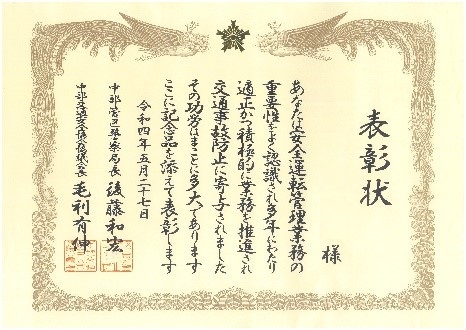 表彰状
様
あなたは安全運転管理業務の
重要性をよく認識され多年にわたり
適正かつ積極的に業務を推進され
交通事故防止に寄与されました
その功労はまことに多大であります
ここに記念品を添えて表彰します
令和四年五月二十七日
中部管区警察局長 後藤和宏
毛利有伸